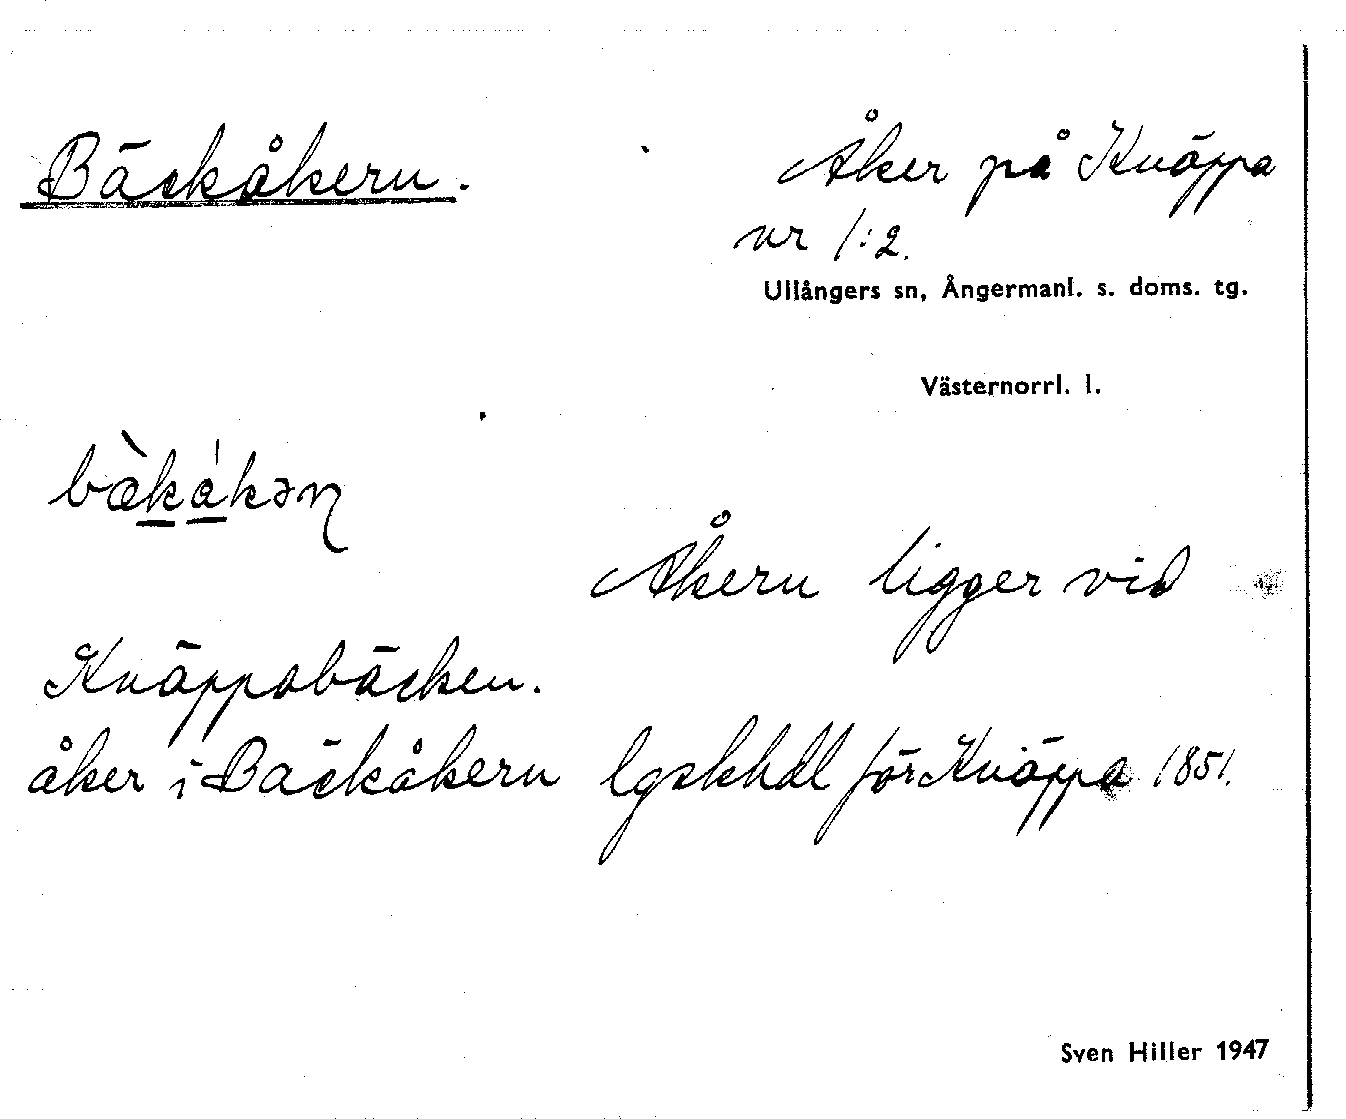 Bäckåkern.
Åker på Knäppa
nr 1:2.
Ullångers sn, Ångermanl. s. doms. tg.
Västernorrl. l.
Åkern ligger vid
Knäppabäcken.
åker i Bäckåkern lgskhdl för Knäppa 1851.
Sven Hiller 1947